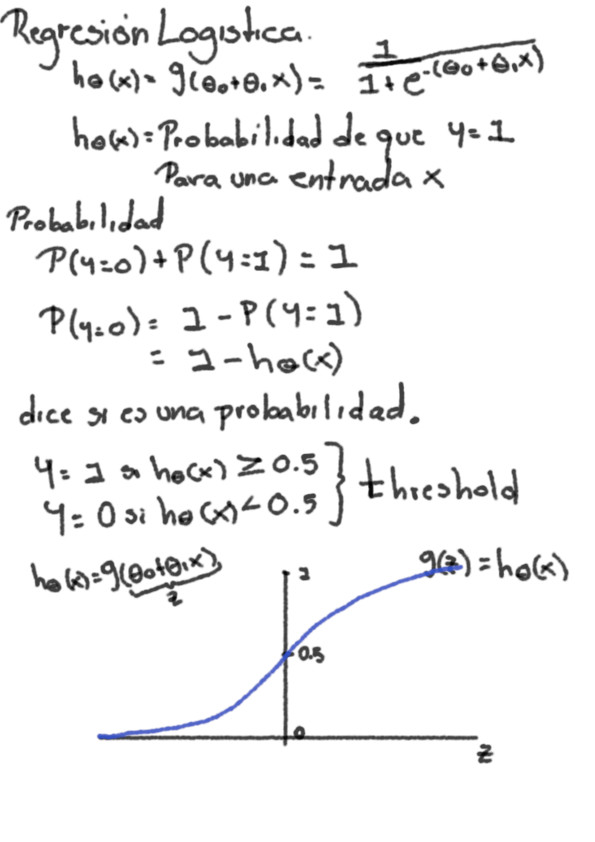 Regresión Logistica.
hθ(x) = g(θ0+θ1x) = 1 / (1 + e^-(θ0+θ1x))
hθ(x) = Probabilidad de que y=1
Para una entrada x
Probabilidad
P(y=0)+P(y=1) = 1
P(y=0) = 1 - P(y=1)
= 1 - hθ(x)
dice si es una probabilidad.
y = 1 si hθ(x) ≥ 0.5
y = 0 si hθ(x) < 0.5
} threshold
hθ(x)=g(θ0+θ1x)
z
g(z) = hθ(x)
1
0.5
0
z